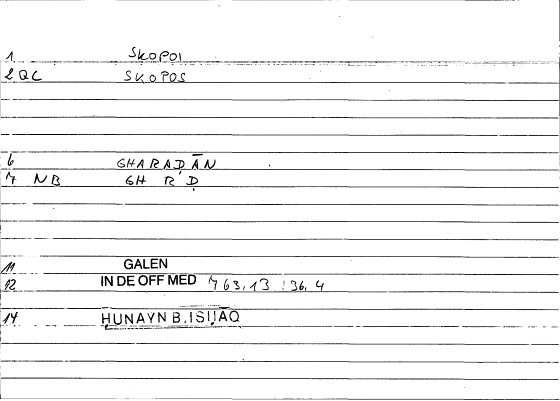 1 SKOPOI
2 QC SKOPOS
6 GHARAḌĀN
7 NB GH R Ḍ
11 GALEN
12 IN DE OFF MED 763,13 : 36,4
14 ḤUNAYN B. ISḤĀQ